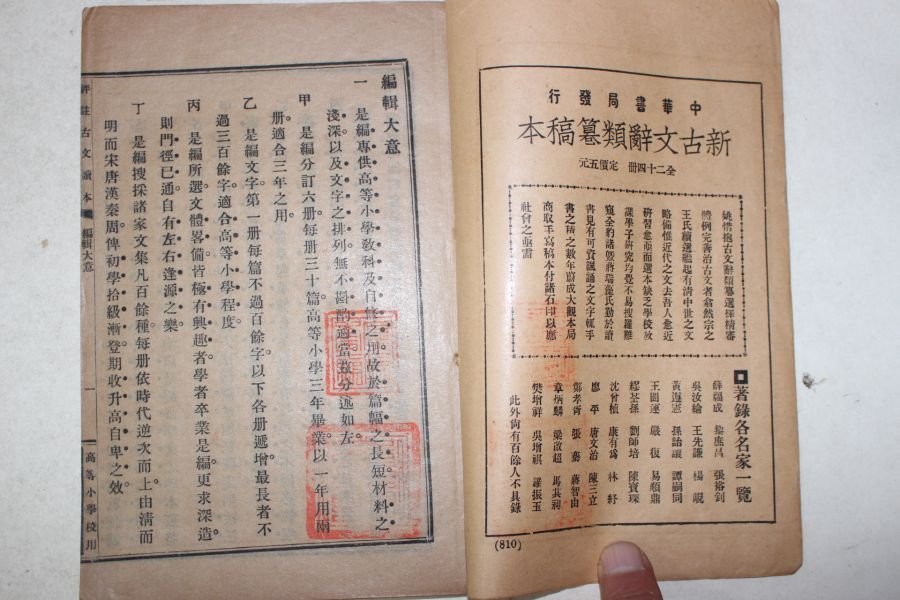 中華書局發行
新古文辭類纂稿本
全二十四冊 定價五元
姚惜抱古文辭類纂選擇精審
體例完善治古文者翕然宗之
王氏續選繼起有清中世之文
略備惟近代之文去吾人愈近
研習愈亟而選本缺乏學校放
課學子研究均覺不易搜羅難
窺全豹諸暨蔣瑞藻氏勤於讀
書見有可資諷誦之文字輒手
書之積之數年蔚成大觀本局
商取手寫稿本付諸石印以應
社會之亟需
著錄各名家一覽
薛福成 黎庶昌 張裕釗
吳汝綸 王先謙 楊峴
黃遵憲 孫詒讓 譚嗣同
王闓運 嚴復 易順鼎
繆荃孫 劉師培 陳寶琛
沈曾植 康有爲 林紓
廖平 唐文治 陳三立
鄭孝胥 張謇 蔣智由
章炳麟 梁啟超 馬其昶
樊增祥 吳增祺 羅振玉
此外尙有百餘人不具錄
(810)
編輯大意
一 是編專供高等小學敎科及自修之用故於篇幅之長短材料之
淺深以及文字之排列無不斟酌適當茲分述如左
甲 是編分訂六册每册三十篇高等小學三年畢業以一年用兩
册適合三年之用
乙 是編文字第一册每篇不過百餘字以下各册遞增最長者不
過三百餘字適合高等小學程度
丙 是編所選文體畧備皆極有興趣者學者卒業是編更求深造
則門徑已通自有左右逢源之樂
丁 是編搜採諸家文集凡百餘種每册依時代逆次而上由淸而
明而宋唐漢秦周俾初學拾級漸登期收升高自卑之效
評註古文讀本
編輯大意
一
高等小學校用